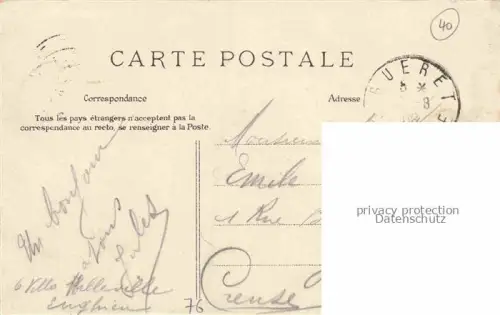 40
CARTE POSTALE
GUERET
Correspondance
Adresse
Tous les pays étrangers n'acceptent pas la
correspondance au recto, se renseigner à la Poste.
Monsieur
Emile
1 Rue
Creuse
Un bonjour
à tous
Jules
6 Villa
Enghien
76
privacy protection
Datenschutz